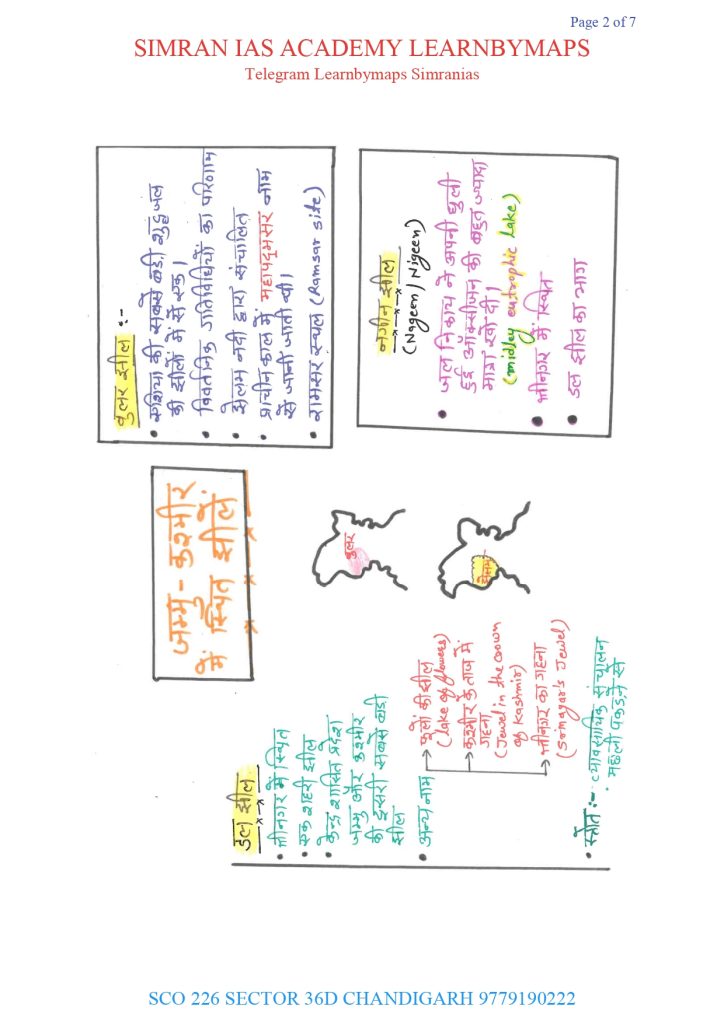 Page 2 of 7
SIMRAN IAS ACADEMY LEARNBYMAPS
Telegram Learnbymaps Simranias
जम्मु - कश्मीर
में स्थित झीलें
डल झील
• श्रीनगर में स्थित
• एक शहरी झील
• केन्द्र शासित प्रदेश
जम्मू और कश्मीर
की दूसरी सबसे बड़ी
झील
• अन्य नाम
फूलों की झील
(Lake of flowers)
कश्मीर के ताज में
गहना
(Jewel in the crown
of Kashmir)
श्रीनगर का गहना
(Srinagar's Jewel)
• स्त्रोत :- व्यावसायिक संचालन
मछली पकड़ने से
वुलर झील :-
• एशिया की सबसे बडी शुद्ध जल
की झीलों में से एक।
• विवर्तनिक गतिविधियों का परिणाम
• झेलम नदी द्वारा संचालित
• प्राचीन काल में महापद्मसर नाम
से जानी जाती थी।
• रामसर स्थल (Ramsar site)
वुलर
झेलम
नगीन झील
(Nageen/Nigeen)
• जल निकाय ने अपनी घुली
हुई ऑक्सीजन की बहुत ज्यादा
मात्रा खो दी।
(midley eutrophic lake)
• श्रीनगर में स्थित
• डल झील का भाग
SCO 226 SECTOR 36D CHANDIGARH 9779190222